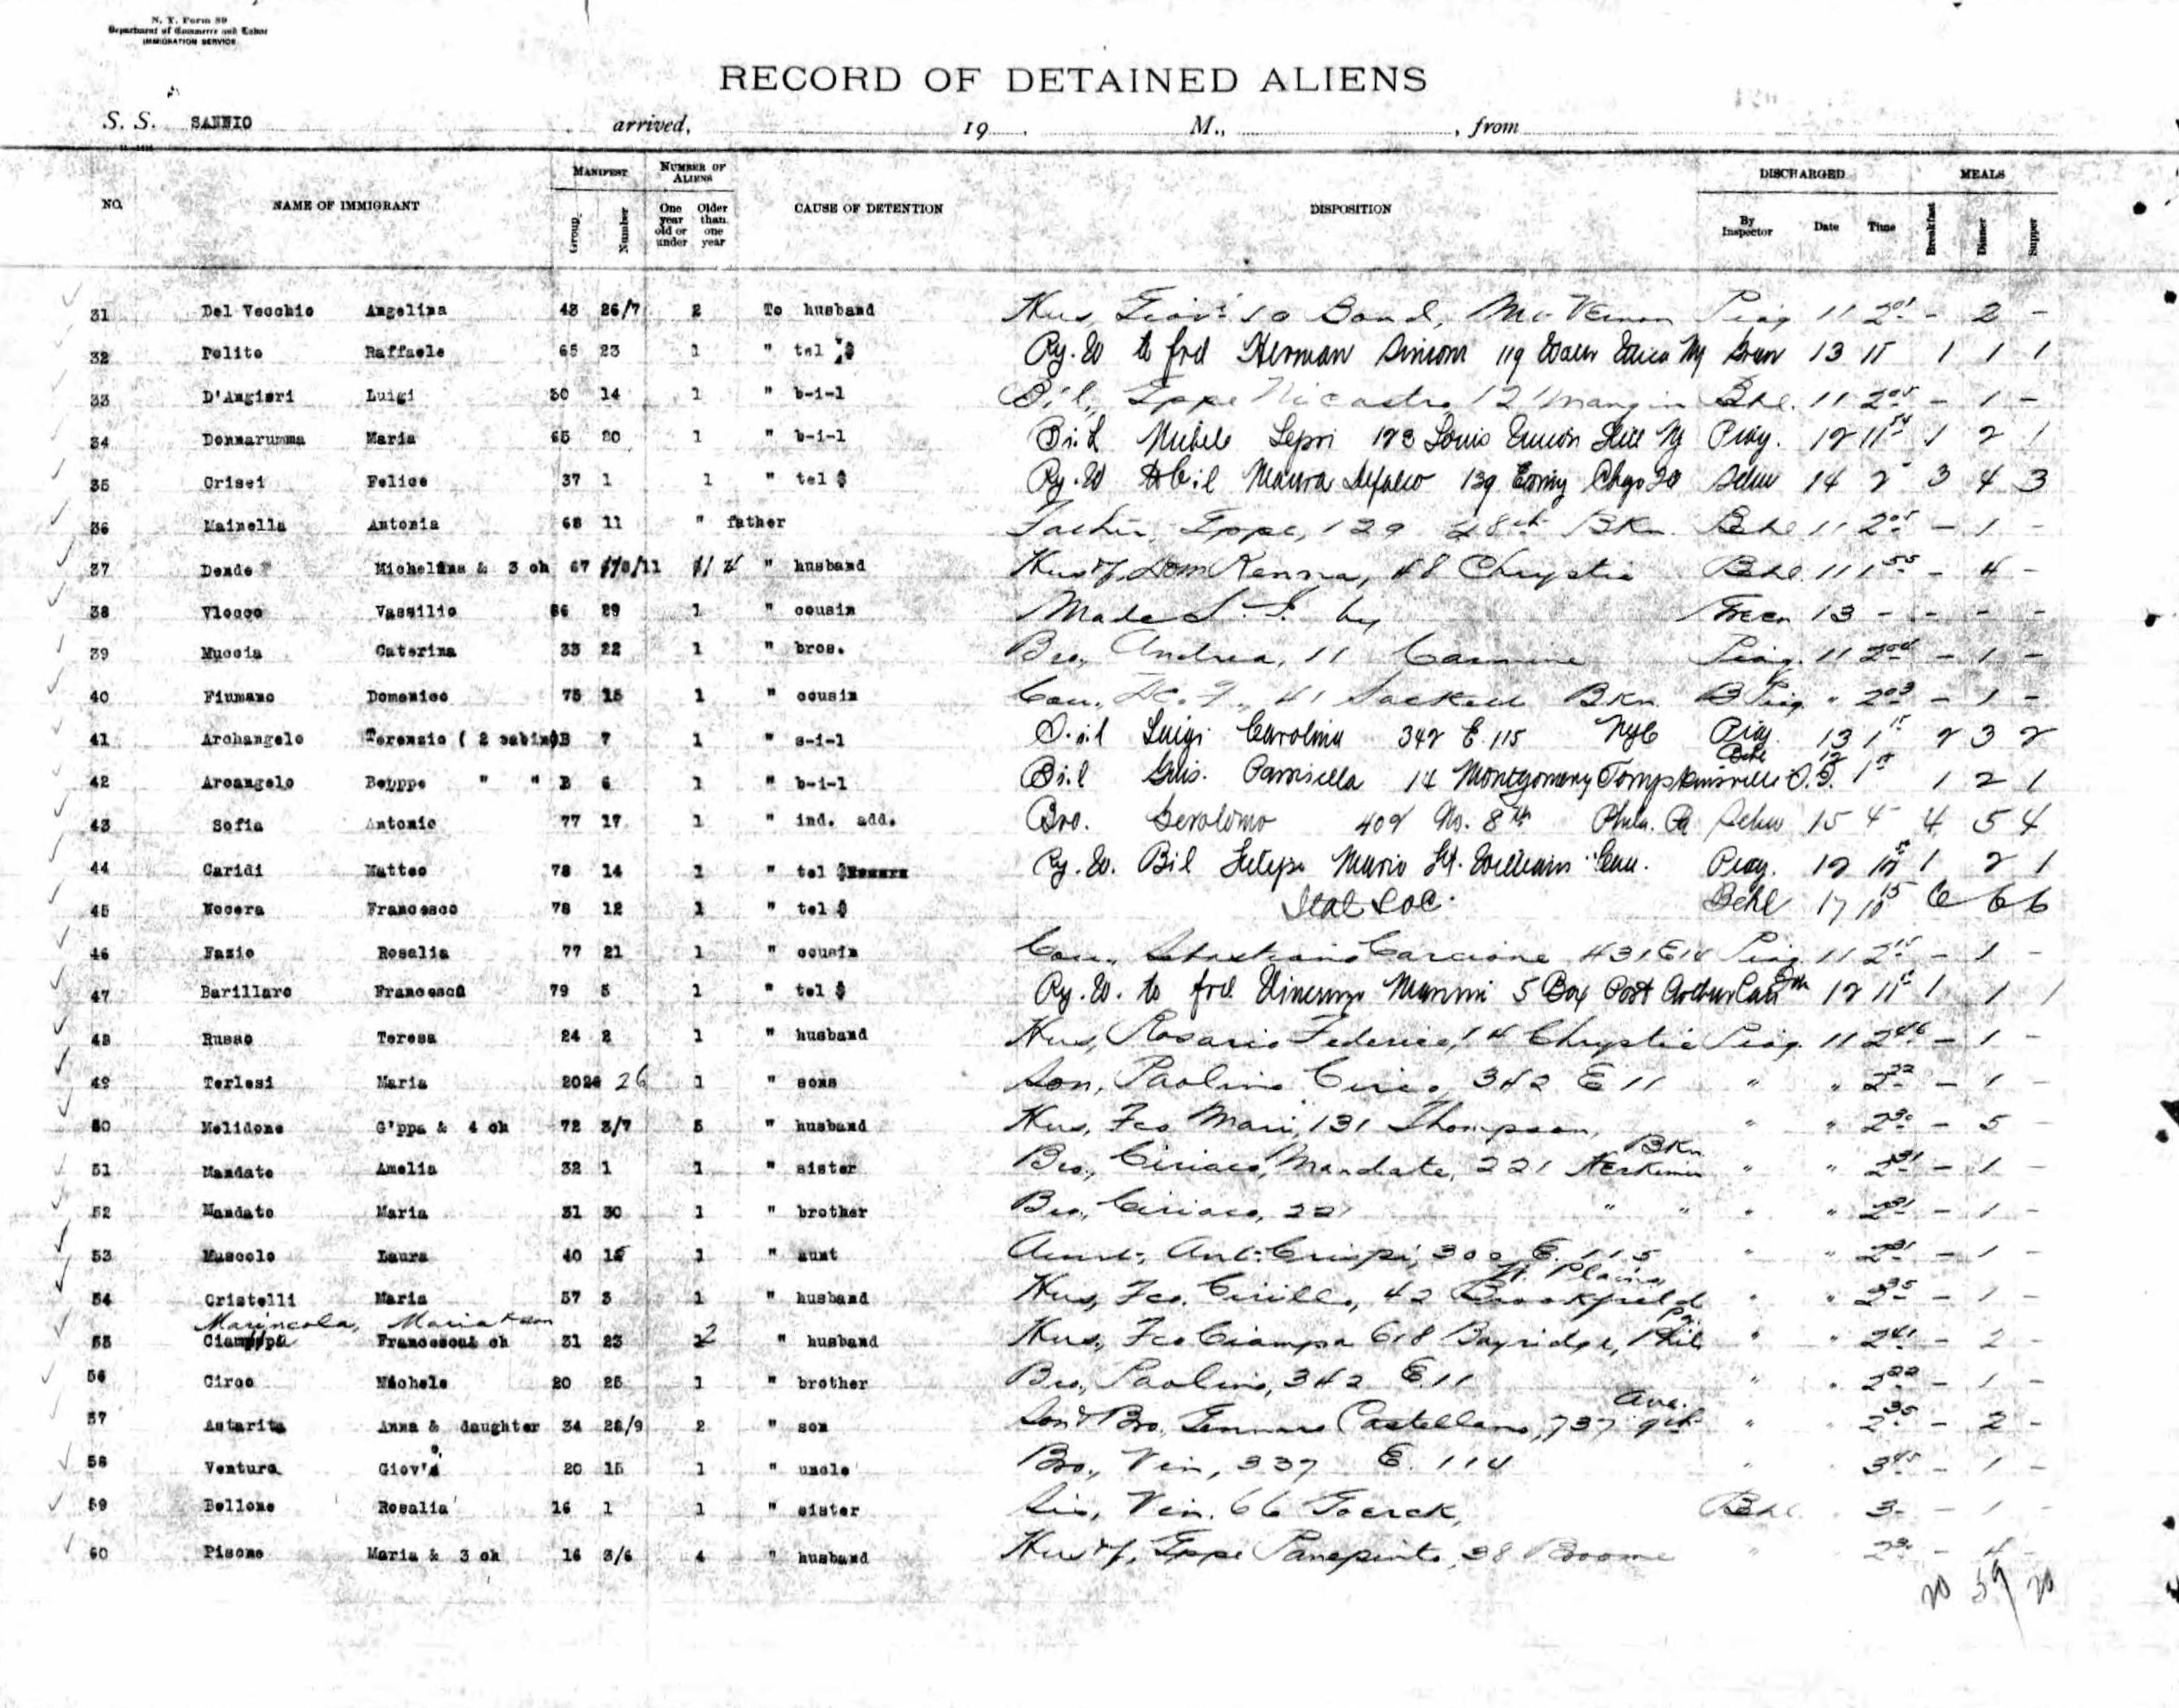 N. Y. Form 89
Department of Commerce and Labor
IMMIGRATION SERVICE
RECORD OF DETAINED ALIENS
S. S. SANNIO arrived, 19 , M., , from
NO. NAME OF IMMIGRANT MANIFEST Group Number NUMBER OF ALIENS One year old or under Older than one year CAUSE OF DETENTION DISPOSITION DISCHARGED By Inspector Date Time MEALS Breakfast Dinner Supper
31 Del Vecchio Angelina 43 26/7 2 To husband Hus, Giov. 10 Bond, Mt. Vernon Piag 11 2 01 - 2 -
32 Polito Raffaele 65 23 1 " tel $ Ry. W to frd Herman Simon 119 Utica NY 13 11 1 1 1
33 D'Angieri Luigi 50 14 1 " b-i-l B.i.l., Gppe Nicastro 12 Mangin Behl. 11 2 05 - 1 -
34 Donnarumma Maria 65 20 1 " b-i-l B.i.l Michele Lepri 123 Louis Union Hill NJ Piag. 12 11 54 1 2 1
35 Crisci Felice 37 1 1 " tel $ Ry. W to b.i.l Maura Defalco 139 Ewing Chgo Ill Schw 14 2 3 4 3
36 Mainella Antonia 68 11 " father Father, Gppe, 129 48th BKn. Behl 11 2 05 - 1 -
37 Dende Michelina & 3 ch 67 /11 " husband Hus & f, Dom Renna, 48 Chrystie Behl. 11 1 55 - 4 -
38 Vlocco Vassilio 86 29 1 " cousin Made S. I. by Green 13 - - - -
39 Muccia Caterina 33 22 1 " bros. Bro., Andrea, 11 Carmine Piag. 11 2 04 - 1 -
40 Fiumano Domenico 75 15 1 " cousin Cou., 41 Sackett BKn. Piag. " 2 03 - 1 -
41 Archangelo Terenzio ( 2 cabin) B 7 1 " s-i-l S.i.l Luigi Carolina 342 E. 115 NYC Piag. 13 1 15 2 3 2
42 Arcangelo Beuppe " " B 6 1 " b-i-l B.i.l Gius. 14 Montgomery Tompkinsville S.I. Behl 12 1 1 2 1
43 Sofia Antonio 77 17 1 " ind. add. Bro. Gerolomo 409 No. 8th Phila. Pa Schw 15 4 4 5 4
44 Caridi Matteo 78 14 1 " tel $ Ry. W. Bil Mario Ft. William Can. Piag. 12 10 1 2 1
45 Nocera Francesco 78 12 1 " tel $ Ital Soc. Behl 17 10 15 6 6 6
46 Fazio Rosalia 77 21 1 " cousin Cou., Sebastiano Carcione 431 E 14 Piag. 11 2 15 - 1 -
47 Barillaro Francesco 79 5 1 " tel $ Ry. W. to frd. Vincenzo 5 Box Port Arthur Can 12 11 1 1 1
48 Russo Teresa 24 2 1 " husband Hus, Rosario Federico, 14 Chrystie Piag. 11 2 46 - 1 -
49 Terlesi Maria 20 26 1 " sons Son, Paolino Circo, 342 E 11 " " 2 22 - 1 -
50 Melidone G'ppa & 4 ch 72 3/7 5 " husband Hus, Fco Mari, 131 Thompson, " " 2 30 - 5 -
51 Mandato Amelia 32 1 1 " sister Bro., Ciriaco Mandato, 221 Herkimer BKn " " 2 31 - 1 -
52 Mandato Maria 31 30 1 " brother Bro., Ciriaco, 221 " " " " 2 31 - 1 -
53 Muscolo Laura 40 15 1 " aunt Aunt, Ant. Crispi, 302 E. 115 " " 2 31 - 1 -
54 Cristelli Maria 57 3 1 " husband Hus, Fco. Cirillo, 42 Brookfield W. Plains " " 2 35 - 1 -
Marincola, Maria &
55 Ciampa Francesca & ch 31 23 2 " husband Hus, Fco Ciampa 618 Bayridge, Phil Pa. " " 2 41 - 2 -
56 Circo Michele 20 25 1 " brother Bro., Paolino, 342 E. 11 " " 2 22 - 1 -
57 Astarita Anna & daughter 34 28/9 2 " son Son & Bro. Gennaro Castellano, 737 9th Ave. " " 2 35 - 2 -
58 Ventura Giov'i 20 15 1 " uncle Bro., Vin, 337 E. 114 " " 3 45 - 1 -
59 Bellone Rosalia 16 1 1 " sister Sis, Vin. 66 Goerck, Behl. " 3 - 1 -
60 Pisono Maria & 3 ch 16 3/6 4 " husband Hus & f, Gppe Panepinto, 38 Broome " 2 30 - 4 -
20 59 20